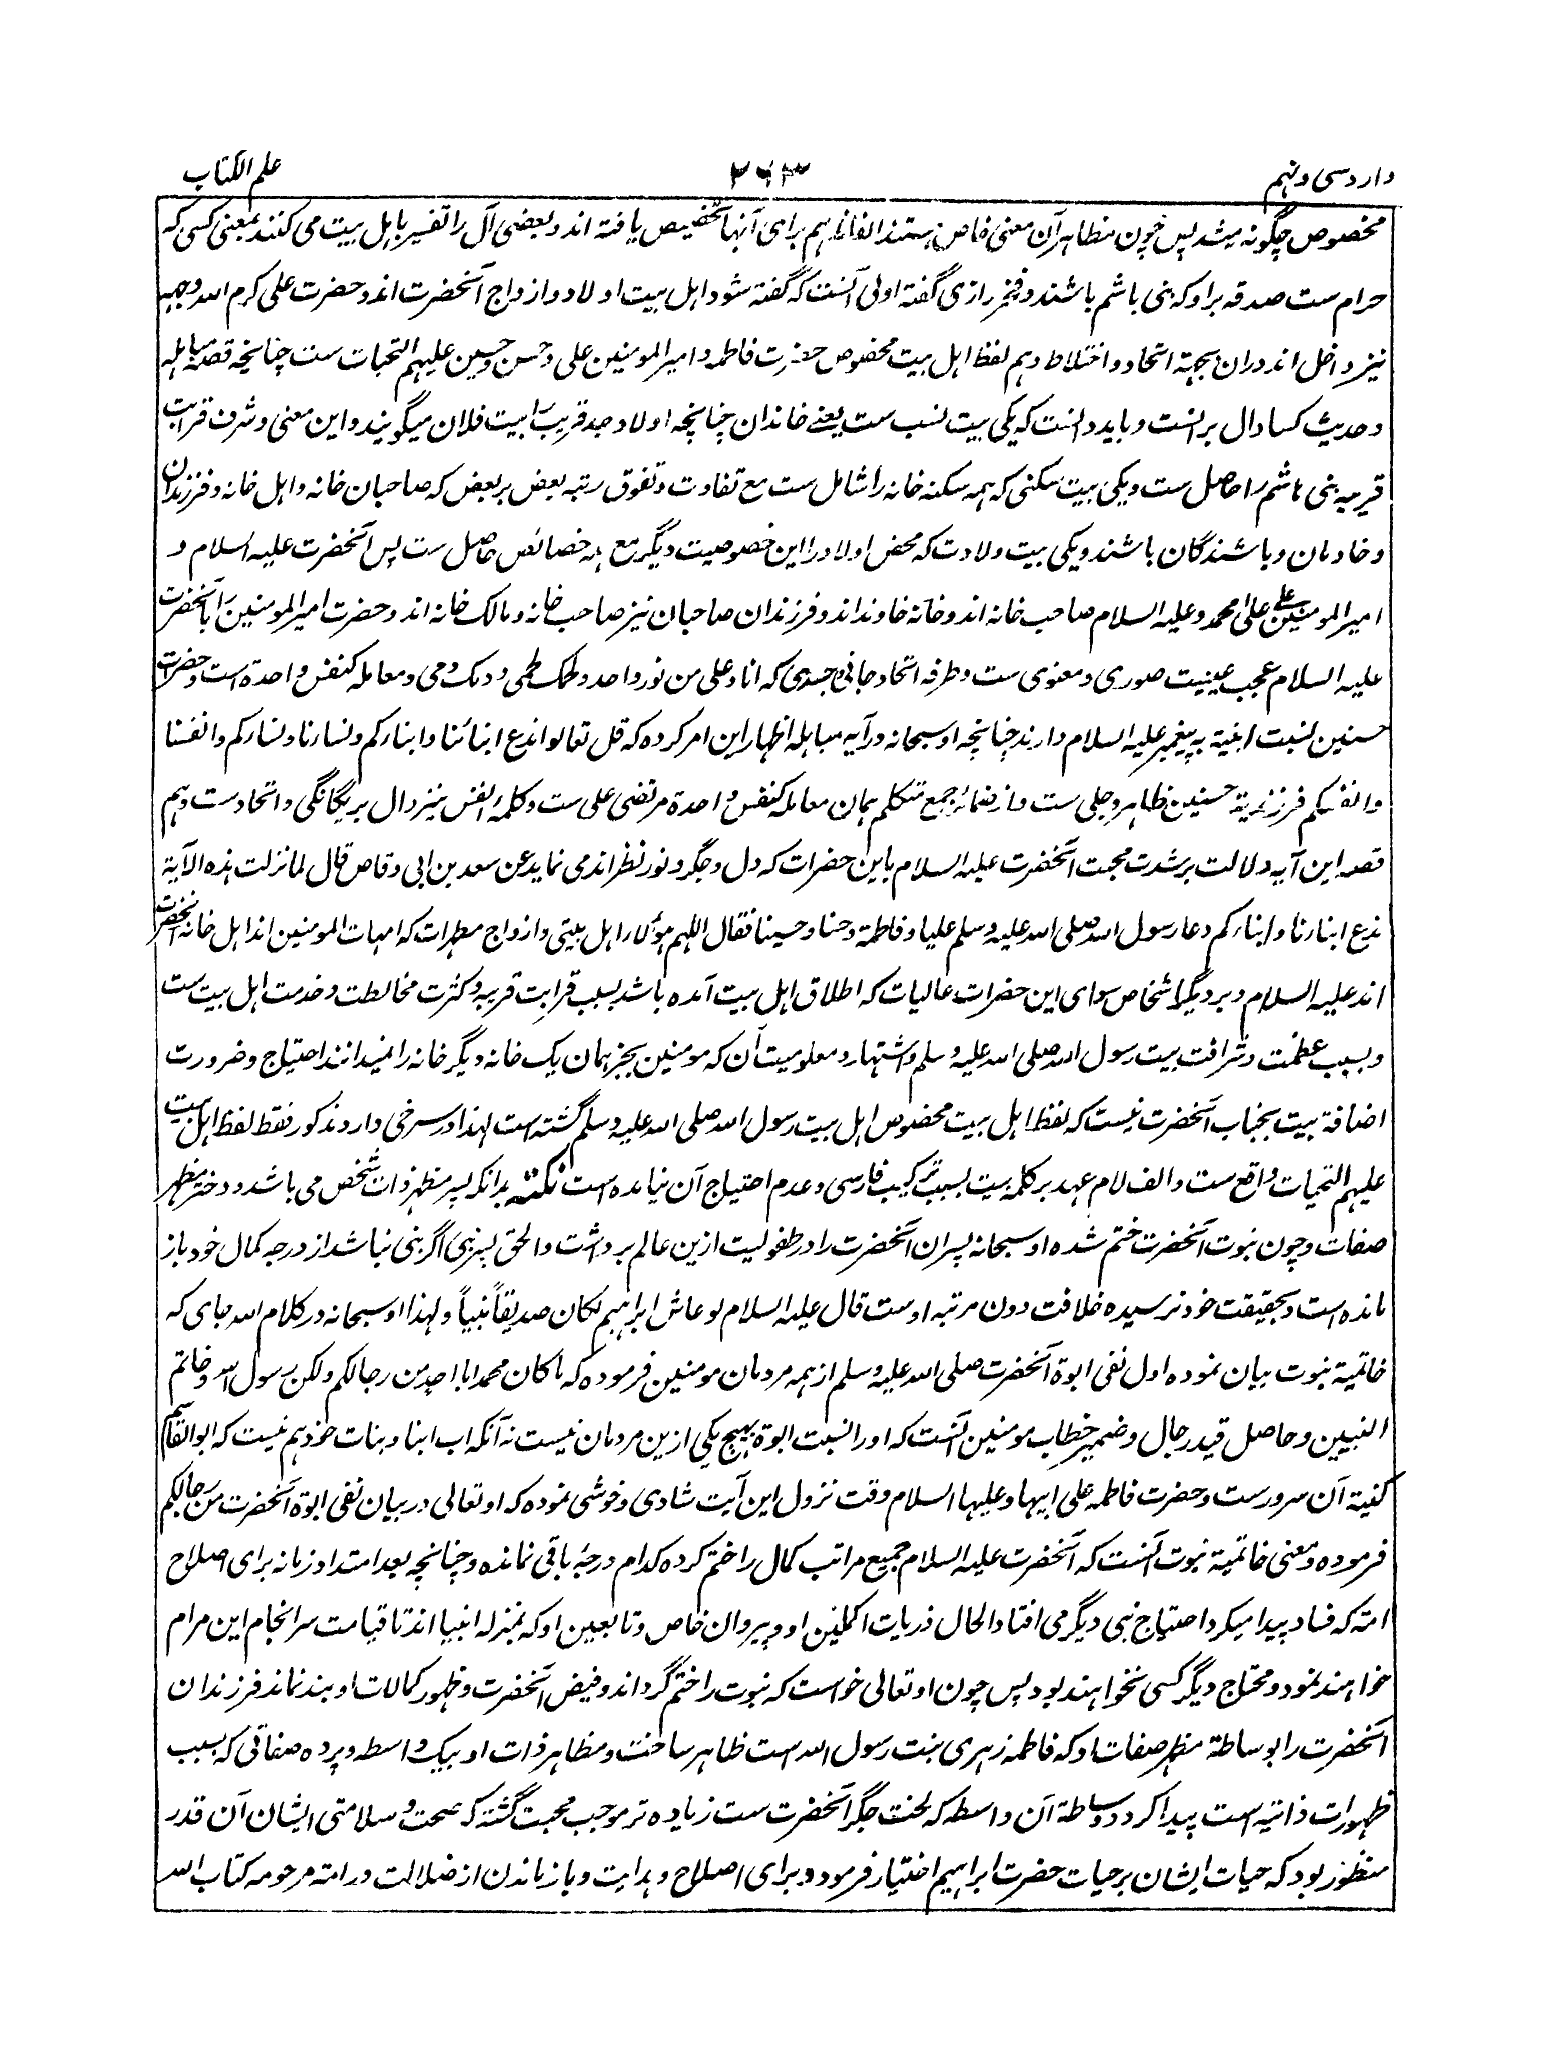 وارد سی و نهم
۲۶۳
علم الکتاب
مخصوص چگونه میشد پس چون مظاهر آن معنی خاص هستند الفاظ هم برای آنها تخصیص یافته اند و بعضی آل را تفسیر باهل بیت می کنند بمعنی کسی که
حرام ست صدقه بر او که بنی هاشم باشند و فخر رازی گفته اولی آنست که گفته شود اهل بیت اولاد و ازواج آنحضرت اند و حضرت علی کرم الله وجهه
نیز داخل اند دران بجهة اتحاد و اختلاط و هم لفظ اهل بیت مخصوص حضرت فاطمه و امیر المومنین علی و حسن و حسین علیهم التحیات ست چنانچه قصه مباهله
و حدیث کسا دال بر انست و باید دانست که یکی بیت نسب ست یعنے خاندان چنانچه اولاد جد قریب را بیت فلان میگویند و این معنی و شرف قرابت
قریبه بنی هاشم را حاصل ست و یکی بیت سکنی که همه سکنه خانه را شامل ست مع تفاوت و تفوق رتبه بعض بر بعض که صاحبان خانه و اهل خانه و فرزندان
و خادمان و باشندگان باشند و یکی بیت ولادت که محض اولاد را این خصوصیت دیگر مع همه خصائص حاصل ست پس آنحضرت علیه السلام و
امیر المومنین علی علی محمد و علیه السلام صاحب خانه اند و خانه خاوند اند و فرزندان صاحبان نیز صاحب خانه و مالک خانه اند و حضرت امیر المومنین را بآنحضرت
علیه السلام عجب عینیت صوری و معنوی ست و طرفه اتحاد جانی و جسدی که انا و علی من نور واحد و لحمک لحمی و دمک دمی و معامله کنفس واحدة است و حضرات
حسنین نسبت ابنیة به پیغمبر علیه السلام دارند چنانچه او سبحانه در آیه مباهله اظهار این امر کرده که قل تعالوا ندع ابنائنا و ابناءکم و نساءنا و نساءکم و انفسنا
و انفسکم فرزندیة حسنین ظاهر و جلی ست و از ضمائر جمع متکلم همان معامله کنفس واحدة مرتضی علی ست و کلمه انفس نیز دال بر یگانگی و اتحاد ست و هم
قصه این آیه دلالت بر شدت محبت آنحضرت علیه السلام باین حضرات که دل و جگر و نور نظر اند می نماید عن سعد بن ابی وقاص قال لما نزلت هذه الآیة
ندع ابناءنا و ابناءکم دعا رسول الله صلی الله علیه وسلم علیا و فاطمة و حسنا و حسینا فقال اللهم هؤلاء اهل بیتی و ازواج مطهرات که امهات المومنین اند اهل خانه آنحضرت
اند علیه السلام و بر دیگر اشخاص سوای این حضرات عالیات که اطلاق اهل بیت آمده باشد بسبب قرابت قریبه و کثرت مخالطت و خدمت اهل بیت ست
و بسبب عظمت و شرافت بیت رسول الله صلی الله علیه وسلم و اشتهار و معلومیت آن که مومنین بجز همان یک خانه دیگر خانه را نمیدانند احتیاج و ضرورت
اضافة بیت بجناب آنحضرت نیست که لفظ اهل بیت مخصوص اهل بیت رسول الله صلی الله علیه وسلم گشته است لهذا در سرخی وارد مذکور فقط لفظ اهل بیت
علیهم التحیات واقع ست و الف لام عهد بر کلمه بیت بسبب ترکیب فارسی و عدم احتیاج آن نیامده است نکته بدانکه پسر مظهر ذات شخص می باشد و دختر مظهر
صفات و چون نبوت آنحضرت ختم شده او سبحانه پسران آنحضرت را در طفولیت ازین عالم برداشت و الحق پسر نبی اگر نبی نباشد از درجه کمال خود باز
مانده است و بحقیقت خود نرسیده خلافت دون مرتبه اوست قال علیه السلام لو عاش ابراهیم لکان صدیقاً نبیاً و لهذا او سبحانه در کلام الله جای که
خاتمیة نبوت بیان نموده اول نفی ابوة آنحضرت صلی الله علیه وسلم از همه مردمان مومنین فرموده که ما کان محمد ابا احد من رجالکم ولکن رسول الله و خاتم
النبیین و حاصل قید رجال و ضمیر خطاب مومنین آنست که او را نسبت ابوة بهیچ یکی ازین مردمان نیست نه آنکه اب ابنا و بنات خود هم نیست که ابو القاسم
کنیة آن سرورست و حضرت فاطمه علی ابیها و علیها السلام وقت نزول این آیت شادی و خوشی نموده که او تعالی در بیان نفی ابوة آنحضرت من رجالکم
فرموده و معنی خاتمیة نبوت آنست که آنحضرت علیه السلام جمیع مراتب کمال را ختم کرده کدام درجه باقی نمانده و چنانچه بعد امتداد زمانه برای اصلاح
امته که فساد پیدا میکرد احتیاج نبی دیگر می افتاد الحال ذریات اکملین او و پیروان خاص و تابعین او که بمنزله انبیا اند تا قیامت سرانجام این مرام
خواهند نمود و محتاج دیگر کسی نخواهند بود پس چون او تعالی خواست که نبوت را ختم گرداند و فیض آنحضرت و ظهور کمالات او بند نماند فرزندان
آنحضرت را بوساطة مظهر صفات او که فاطمه زهری بنت رسول الله است ظاهر ساخت و مظاهر ذات او بیک واسطه و پرده صفاتی که بسبب
ظهورات ذاتیه است پیدا کرد و وساطة آن واسطه که لخت جگر آنحضرت ست زیاده تر موجب محبت گشته که صحت و سلامتی ایشان آن قدر
منظور بود که حیات ایشان بر حیات حضرت ابراهیم اختیار فرمود و برای اصلاح و هدایت و باز ماندن از ضلالت در امته مرحومه کتاب الله